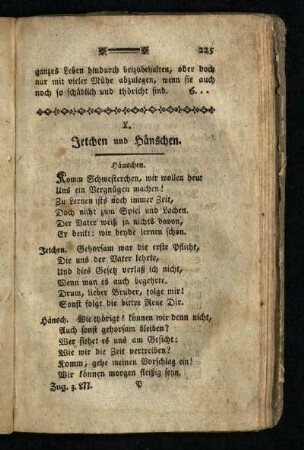 225
ganzes Leben hindurch beizubehalten, oder doch
nur mit vieler Mühe abzulegen, wenn sie auch
noch so schädlich und thöricht sind. S...
X.
Jetchen und Hänschen.
Hänschen.
Komm Schwesterchen, wir wollen heut
Uns ein Vergnügen machen!
Zu Lernen ists noch immer Zeit,
Doch nicht zum Spiel und Lachen.
Der Vater weiß ja nichts davon,
Er denkt: wir beyde lernen schon.
Jetchen. Gehorsam war die erste Pflicht,
Die uns der Vater lehrte,
Und dies Gesetz verlaß ich nicht,
Wenn man es auch begehrte.
Drum, lieber Bruder, folge mir!
Sonst folgt die bittre Reue Dir.
Hänsch. Wie thörigt! können wir denn nicht,
Auch sonst gehorsam bleiben?
Wer siehet es uns am Gesicht:
Wie wir die Zeit vertreiben?
Komm, gehe meinen Vorschlag ein!
Wir können morgen fleißig seyn.
Jug. z. III. P